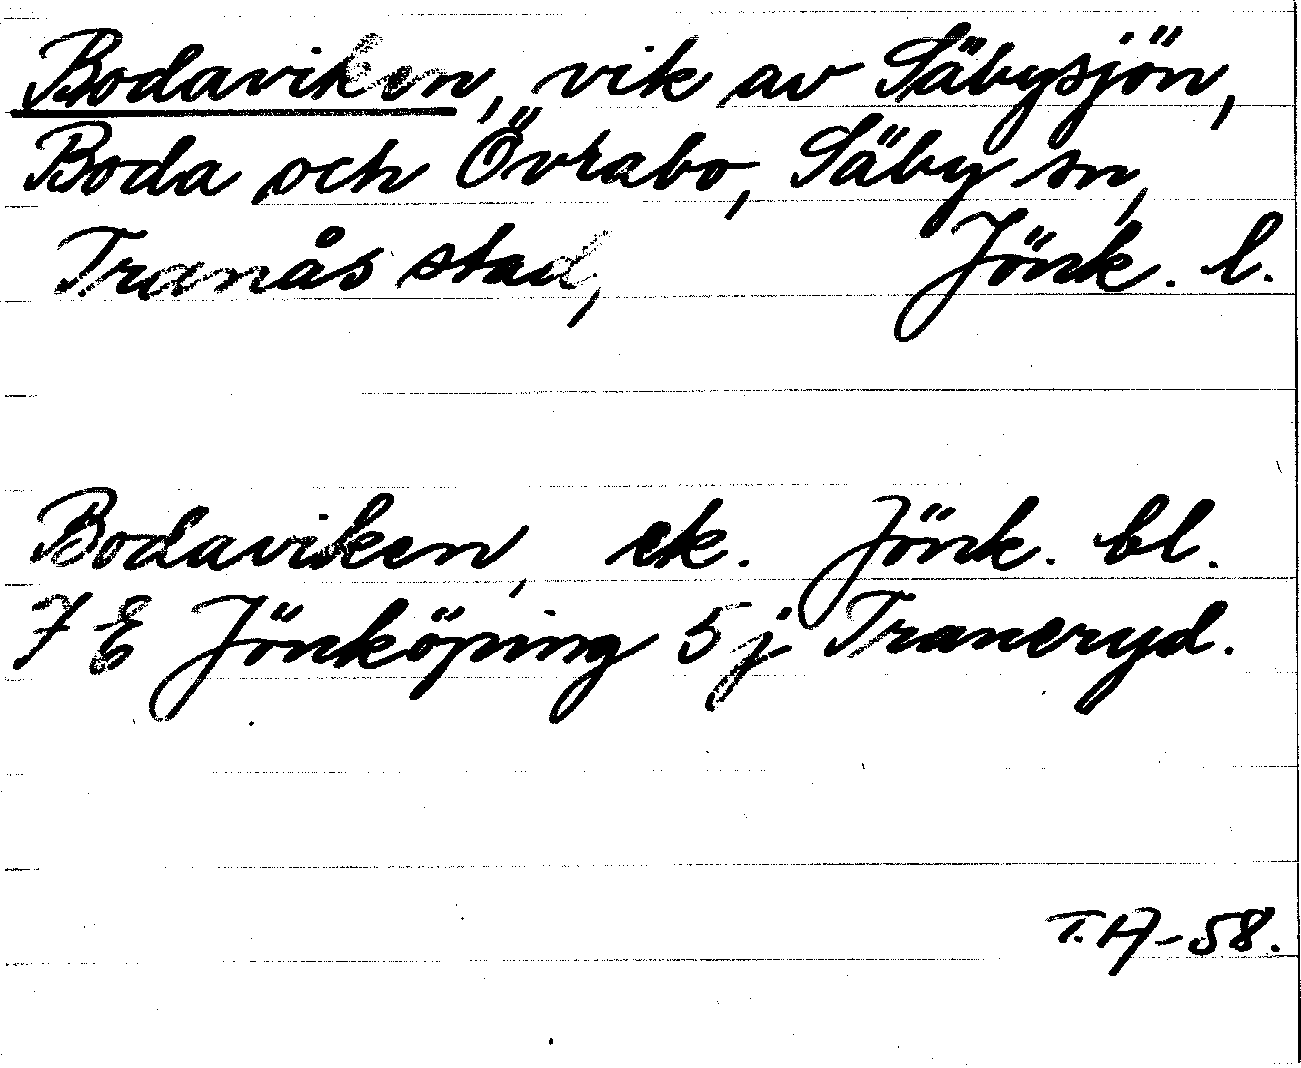 Bodaviken, vik av Säbysjön,
Boda och Övrabo, Säby sn,
Tranås stad, Jönk. l.
Bodaviken, ek. Jönk. bl.
7 E Jönköping 5 j Traneryd.
T. A-58.